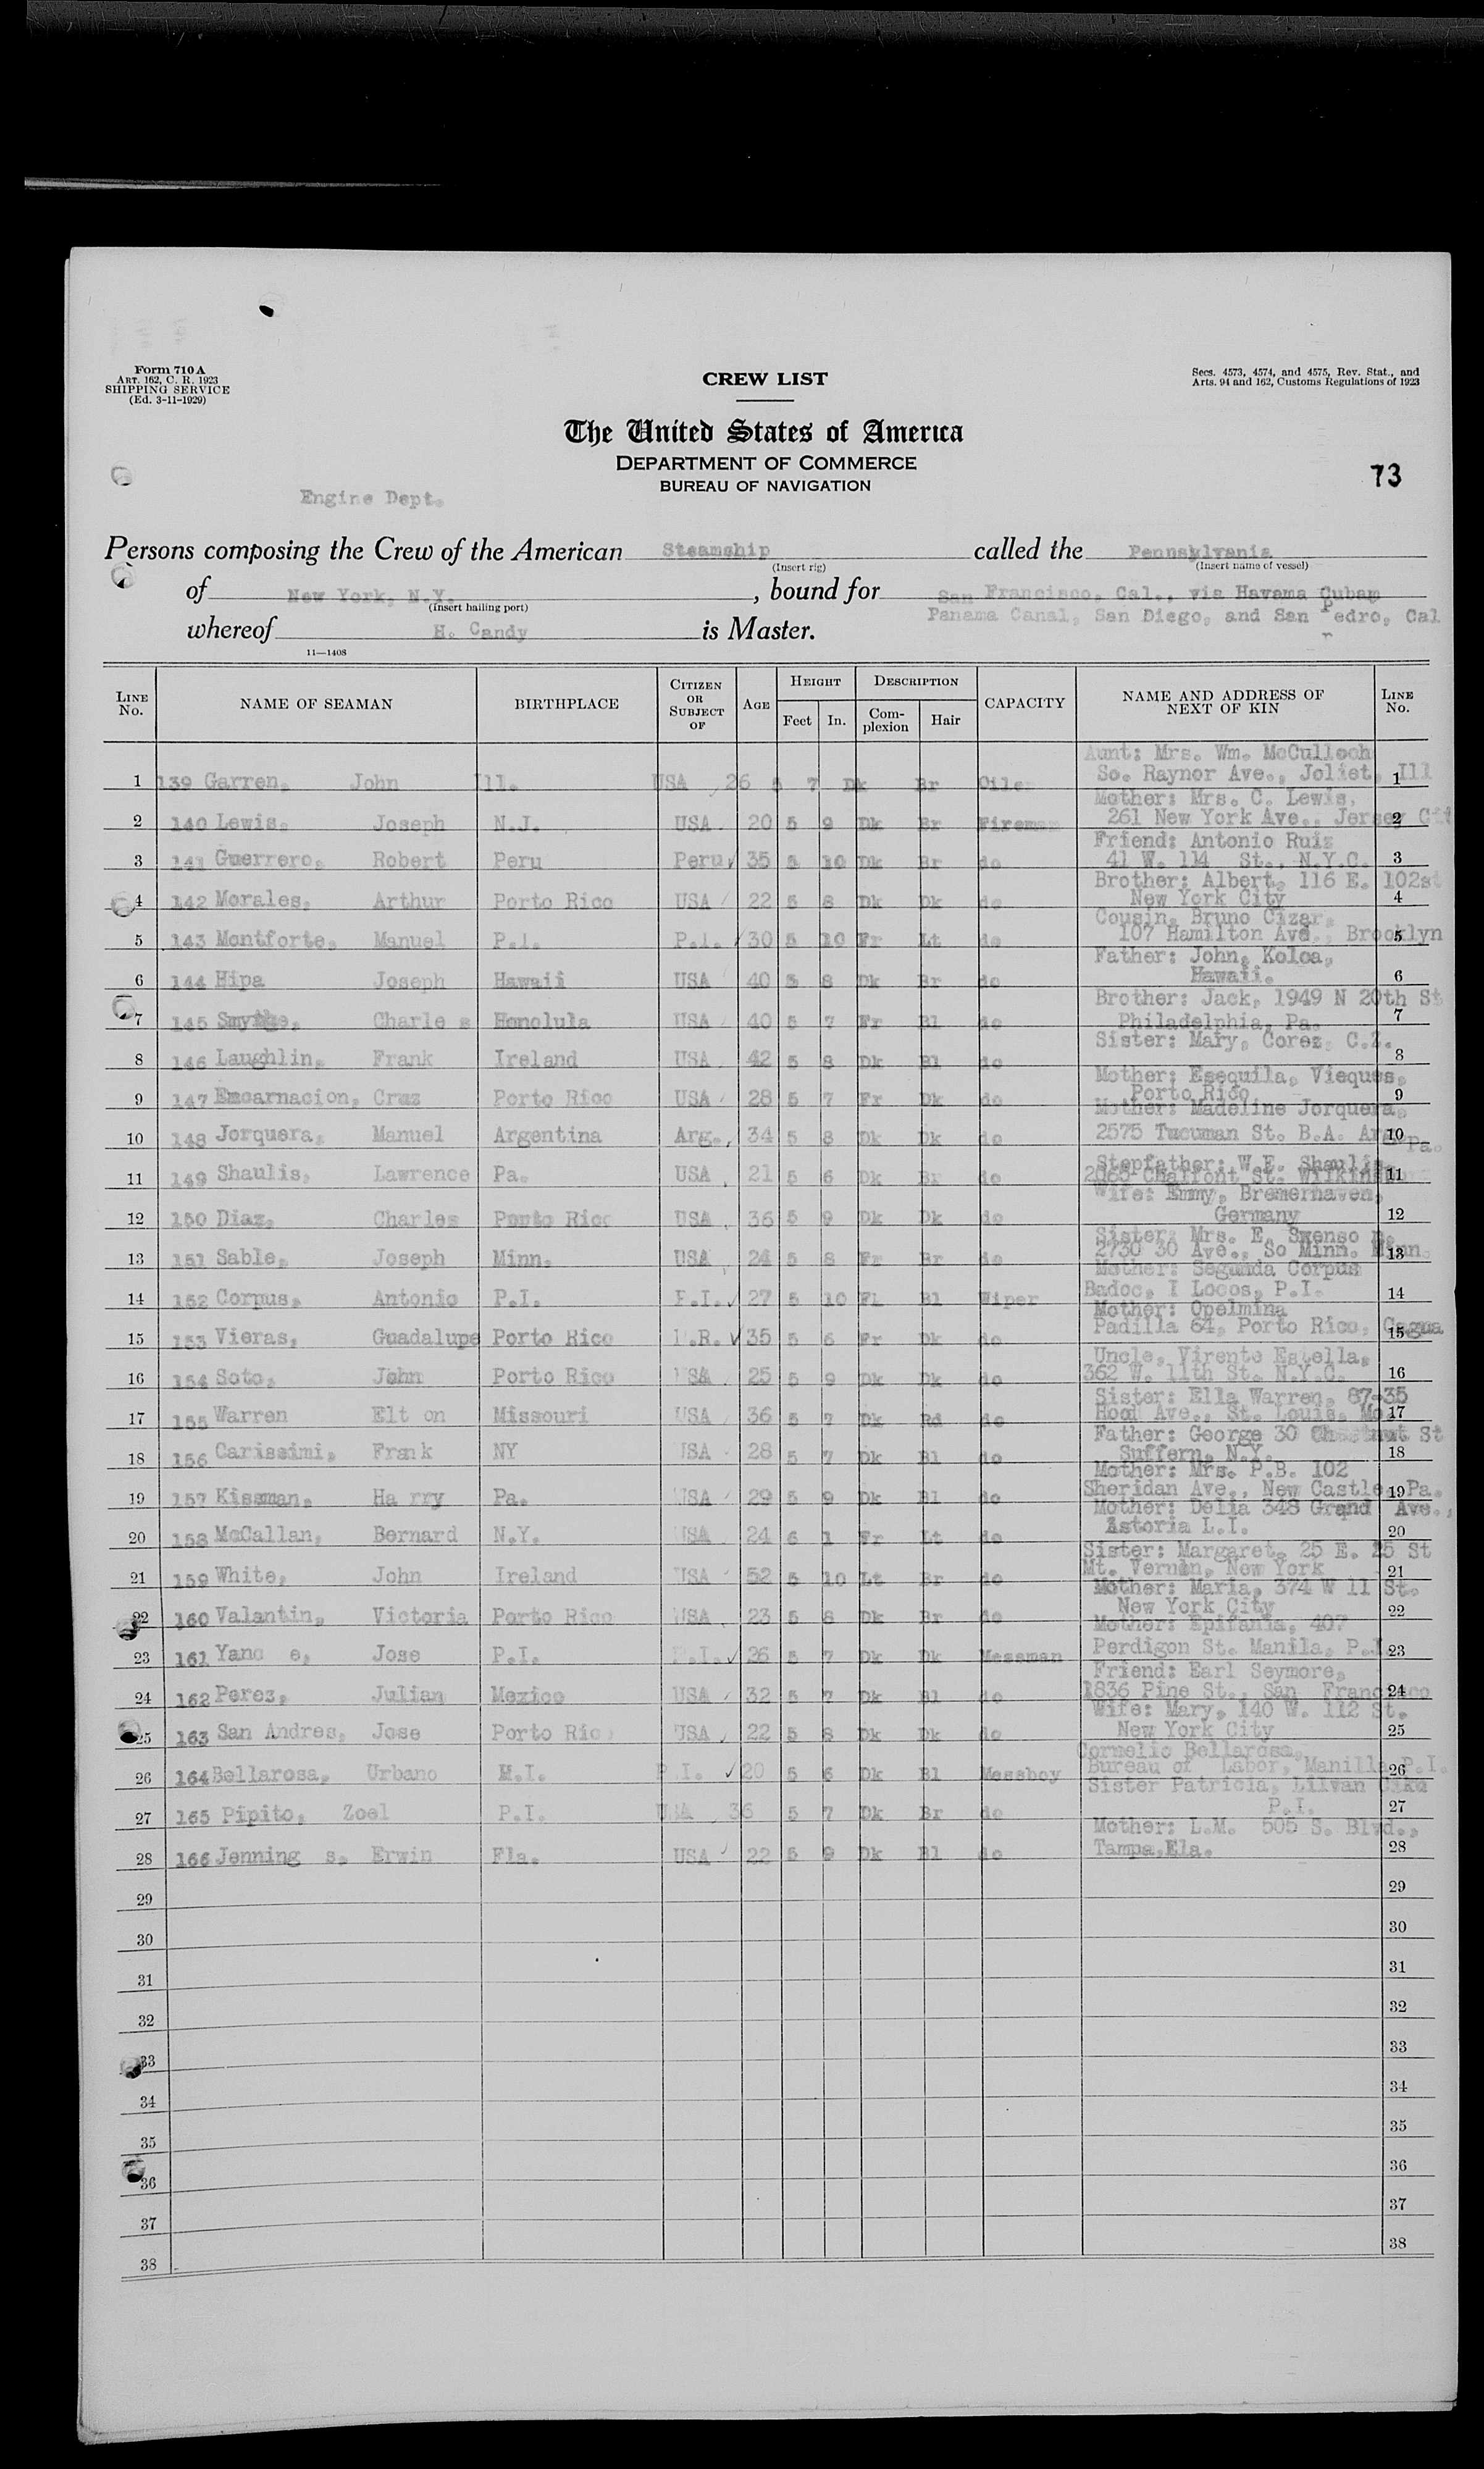 Form 710 A
ART. 162, C. R. 1923
SHIPPING SERVICE
(Ed. 3-11-1929)
CREW LIST
Secs. 4573, 4574, and 4575, Rev. Stat., and
Arts. 94 and 162, Customs Regulations of 1923
The United States of America
DEPARTMENT OF COMMERCE
BUREAU OF NAVIGATION
73
Engine Dept.
Persons composing the Crew of the American Steamship called the Pennsylvania
(Insert rig) (Insert name of vessel)
of New York, N.Y. , bound for San Francisco, Cal., via Havama Cubam
(Insert hailing port) Panama Canal, San Diego, and San Pedro, Cal
whereof H. Candy is Master.
11—1408
LINE No. NAME OF SEAMAN BIRTHPLACE CITIZEN OR SUBJECT OF AGE HEIGHT Feet In. DESCRIPTION Complexion Hair CAPACITY NAME AND ADDRESS OF NEXT OF KIN LINE No.
Aunt: Mrs. Wm. McCulloch
1 139 Garren, John Ill. USA 26 5 7 Dk Br Oiler So. Raynor Ave., Joliet, Ill 1
Mother: Mrs. C. Lewis,
2 140 Lewis, Joseph N.J. USA 20 5 9 Dk Br Fireman 261 New York Ave., Jersey 2
Friend: Antonio Ruiz
3 141 Guerrero, Robert Peru Peru 35 5 10 Dk Br do 41 W. 114 St., N.Y.C. 3
Brother: Albert, 116 E. 102st
4 142 Morales, Arthur Porto Rico USA 22 5 8 Dk Dk do New York City 4
Cousin, Bruno Cizar,
5 143 Montforte, Manuel P.I. P.I. 30 5 10 Fr Lt do 107 Hamilton Ave., Brooklyn 5
Father: John, Koloa,
6 144 Hipa Joseph Hawaii USA 40 5 8 Dk Br do Hawaii. 6
Brother: Jack, 1949 N 20th St
7 145 Charle s Honolula USA 40 5 7 Fr Bl do Philadelphia, Pa. 7
Sister: Mary, Corez, C.Z.
8 146 Laughlin, Frank Ireland USA 42 5 8 Dk Bl do 8
Mother: Esequila, Vieques,
9 147 Encarnacion, Cruz Porto Rico USA 28 5 7 Fr Dk do Porto Rico 9
Mother: Madeline Jorquera,
10 148 Jorquera, Manuel Argentina Arg. 34 5 8 Dk Dk do 2575 Tucuman St. B.A. 10
Stepfather: W.E. Shaulis
11 149 Shaulis, Lawrence Pa. USA 21 5 6 Dk Br do 2065 Chalfont St. Pa. 11
Wife: Emmy, Bremerhaven,
12 150 Diaz, Charles Porto Rico USA 36 5 9 Dk Dk do Germany 12
Sister: Mrs. E. Swenso n.
13 151 Sable, Joseph Minn. USA 24 5 8 Fr Br do 2730 30 Ave., So Minn. Minn. 13
Mother: Segunda Corpus
14 152 Corpus, Antonio P.I. P.I. 27 5 10 Bl Wiper Badoc, I Locos, P.I. 14
Mother: Opelmina
15 153 Vieras, Guadalupe Porto Rico P.R. 35 5 6 Fr Dk do Padilla 64, Porto Rico, 15
Uncle, Virento Estella,
16 154 Soto, John Porto Rico USA 25 5 9 Dk Dk do 362 W. 11th St. N.Y.C. 16
Sister: Ella Warren, 87-35
17 155 Warren Elt on Missouri USA 36 5 7 Dk Rd do Hood Ave., St. Louis, Mo. 17
Father: George 30 Chestnut St
18 156 Carissimi, Frank NY USA 28 5 7 Dk Bl do Suffern, N.Y. 18
Mother: Mrs. P.B. 102
19 157 Kissman, Ha rry Pa. USA 29 5 9 Dk Bl do Sheridan Ave., New Castle, Pa. 19
Mother: Delia 348 Grand Ave.,
20 158 McCallan, Bernard N.Y. USA 24 6 1 Fr Lt do Astoria L.I. 20
Sister: Margaret, 25 E. 25 St
21 159 White, John Ireland USA 52 5 10 Lt Br do Mt. Vernon, New York 21
Mother: Maria, 374 W 11 St.
22 160 Valantin, Victoria Porto Rico USA 23 5 8 Dk Br do New York City 22
Mother: Epifania, 407
23 161 Yano e, Jose P.I. P.I. 26 5 7 Dk Dk Messman Perdigon St. Manila, P.I. 23
Friend: Earl Seymore,
24 162 Perez, Julian Mexico USA 32 5 7 Dk Bl do 1836 Pine St., San Francisco 24
Wife: Mary, 140 W. 112 St.
25 163 San Andres, Jose Porto Rico USA 22 5 8 Dk Dk do New York City 25
Cornelio Bellarosa,
26 164 Bellarosa, Urbano M.I. P.I. 20 5 6 Dk Bl Messboy Bureau of Labor, Manilla P.I. 26
Sister Patricia, Lilvan
27 165 Pipito, Zoel P.I. USA 36 5 7 Dk Br do P.I. 27
Mother: L.M. 505 S. Blvd.,
28 166 Jenning s, Erwin Fla. USA 22 5 9 Dk Bl do Tampa,Ela. 28
29 29
30 30
31 31
32 32
33 33
34 34
35 35
36 36
37 37
38 38